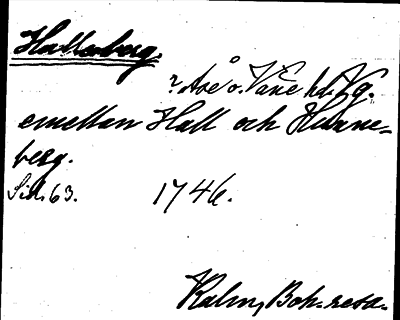 Hallenberg.
? Åse o. Väne hd. Vg.
emellan Hall och Hunne-
berg.
Sid. 63. 1746.
Kalm, Boh. resa.